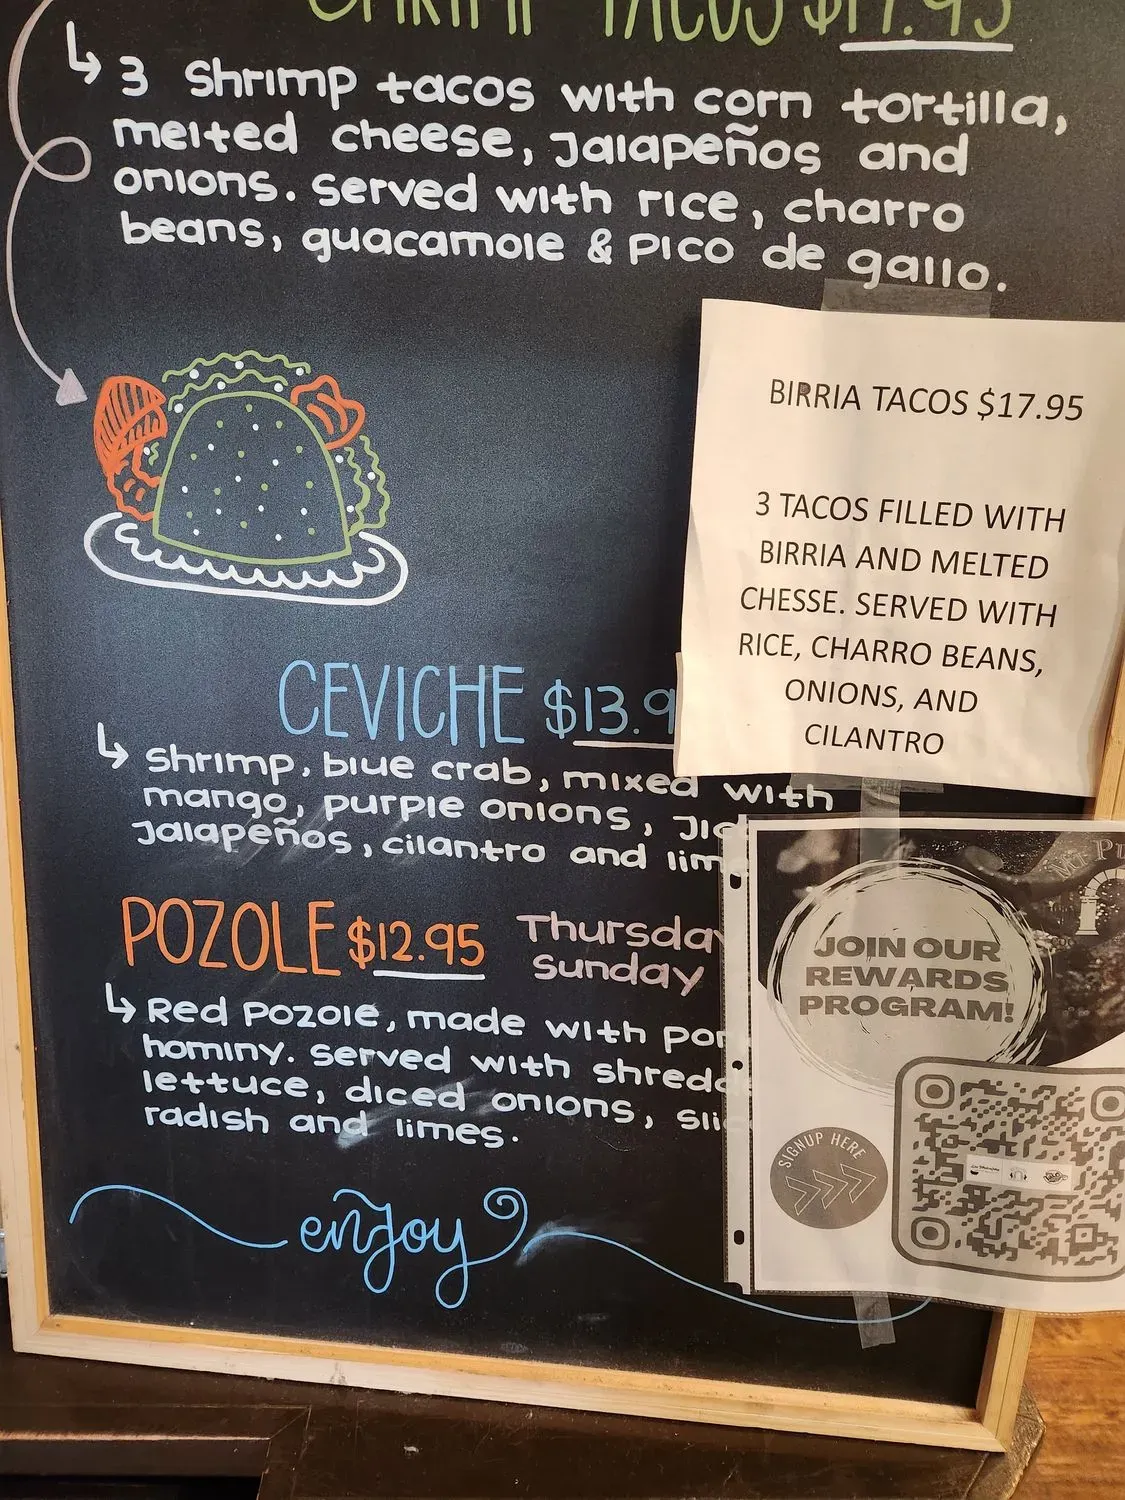 SHRIMP TACOS $17.95
↳ 3 Shrimp tacos with corn tortilla,
melted cheese, Jalapeños and
onions. Served with rice, charro
beans, guacamole & Pico de gallo.
BIRRIA TACOS $17.95
3 TACOS FILLED WITH
BIRRIA AND MELTED
CHESSE. SERVED WITH
RICE, CHARRO BEANS,
ONIONS, AND
CILANTRO
CEVICHE $13.9
↳ Shrimp, blue crab, mixed with
mango, purple onions,
Jalapeños, cilantro and
POZOLE $12.95
Thursday
Sunday
↳ Red Pozole, made with
hominy. Served with
lettuce, diced onions,
radish and limes.
enjoy
JOIN OUR
REWARDS
PROGRAM!
SIGNUP HERE